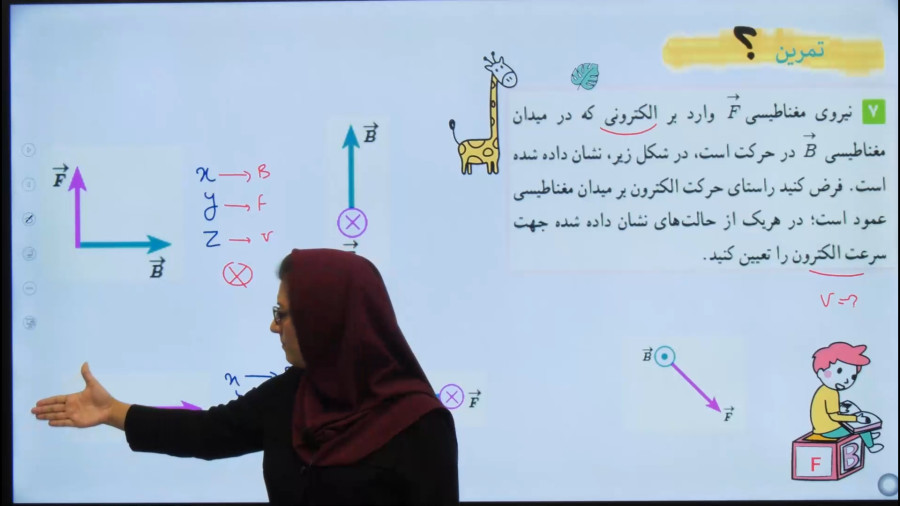 تمرین ؟
۷ نیروی مغناطیسی F وارد بر الکترونی که در میدان
مغناطیسی B در حرکت است، در شکل زیر، نشان داده شده
است. فرض کنید راستای حرکت الکترون بر میدان مغناطیسی
عمود است؛ در هریک از حالت‌های نشان داده شده جهت
سرعت الکترون را تعیین کنید.
v = ?
B
F
x → B
y → F
z → v
B
x →
F
B
F
F B